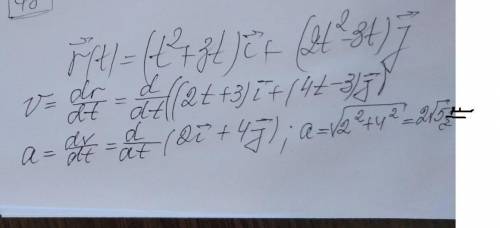 40
r⃗(t) = (t²+3t)i⃗ + (2t²-3t)j⃗
v = dr/dt = d/dt((2t+3)i⃗ + (4t-3)j⃗)
a = dv/dt = d/dt(2i⃗ + 4j⃗); a = √(2²+4²) = 2√5